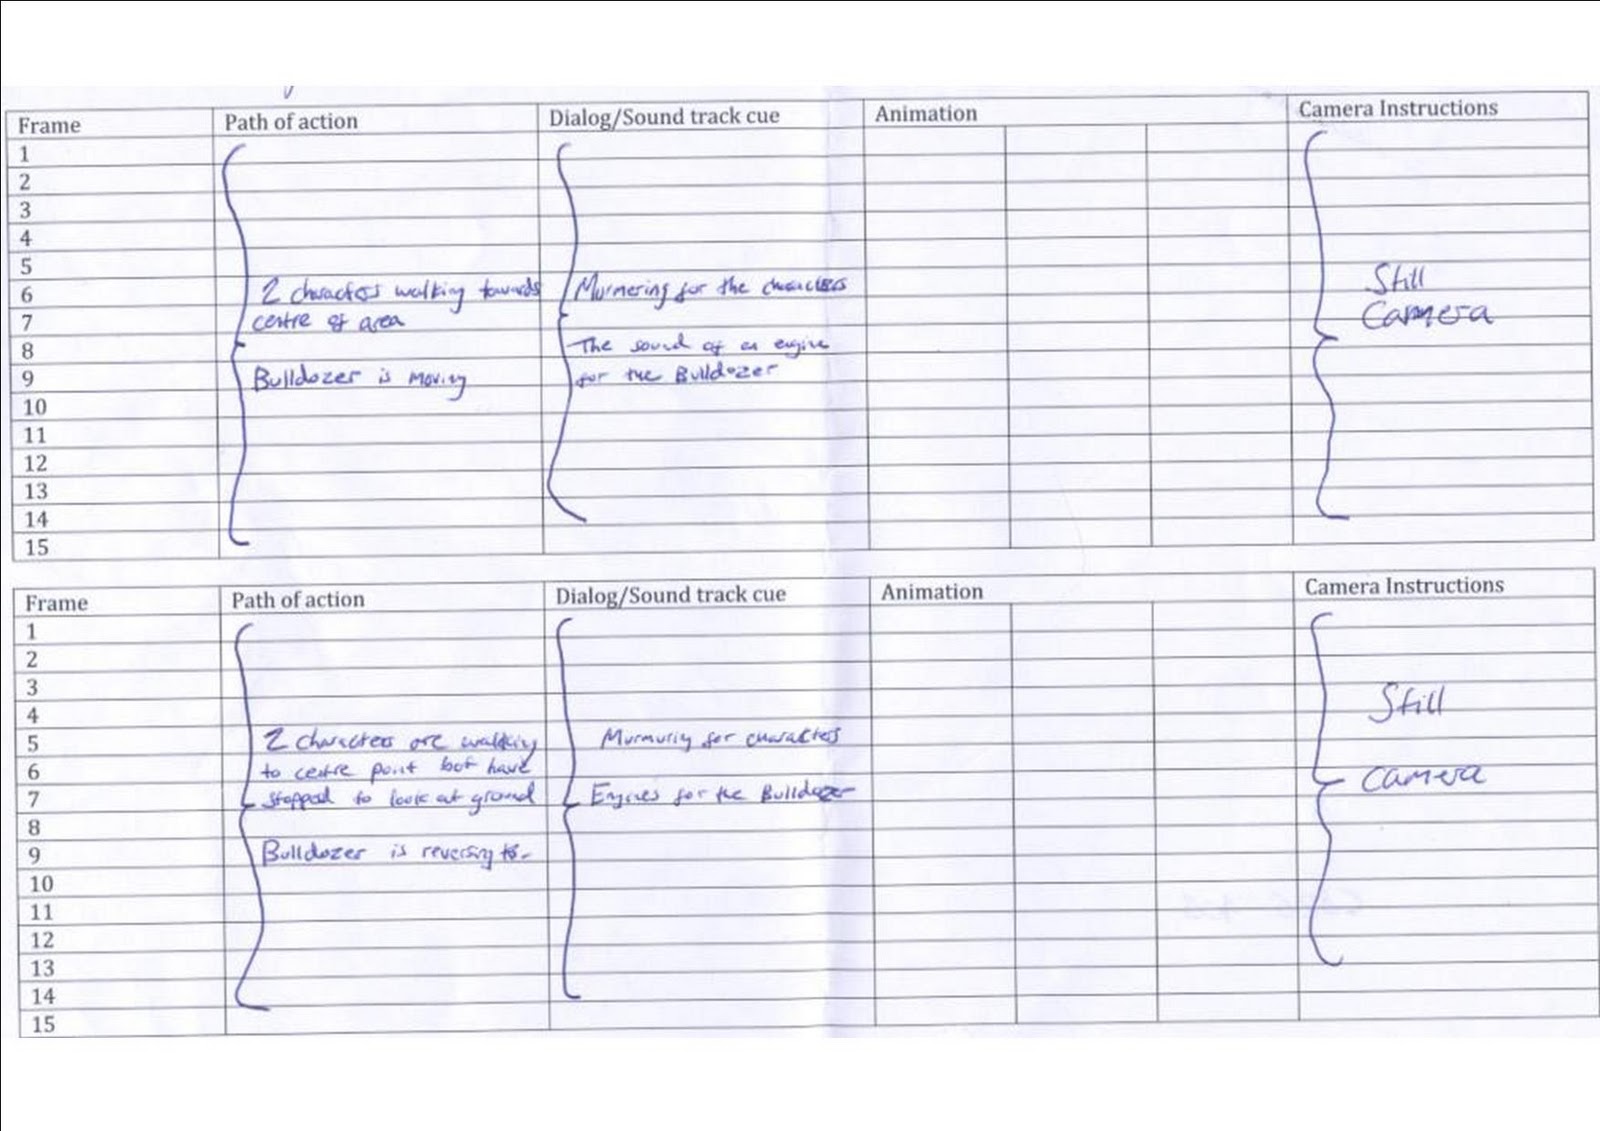 Frame Path of action Dialog/Sound track cue Animation Camera Instructions
1
2
3
4
5
6 2 characters walking towards Murmering for the characters Still
7 centre of area Camera
8 The sound of an engine
9 Bulldozer is moving for the Bulldozer
10
11
12
13
14
15
Frame Path of action Dialog/Sound track cue Animation Camera Instructions
1
2
3
4 Still
5 2 characters are walking Murmuring for characters
6 to centre point but have Camera
7 stopped to look at ground Engines for the Bulldozer
8
9 Bulldozer is reversing to
10
11
12
13
14
15